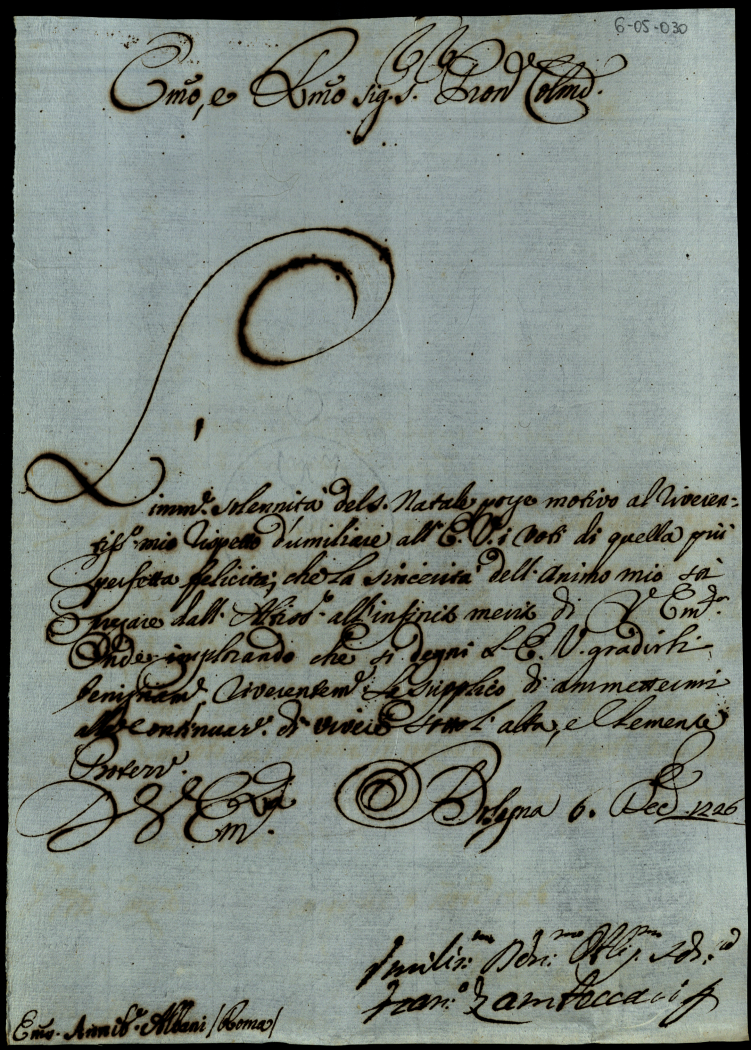 6-05-030
Emo, e Rmo sig. s. Pron Colmo.
L'immte. solennità del s. Natale porge motivo al riveren-
tissmo. mio rispetto d'umiliare all' E. V. i voti di quella più
perfetta felicità, che la sincerità dell' animo mio
pregare dall' Altissmo. all' infinito merito di V Emza.
Onde implorando che si degni L' E. V. gradirli
benignamte. riverentemte. La supplico di ammettermi
alla continuaze. di vivere sotto l' alta, e Clemente
Protezze.
D V Emza.
Bologna 6. Dec. 1726
Umilis.mo Dev.mo Obli.mo
Fran.o Zambeccari
Emo. Annibe. Albani / Roma /